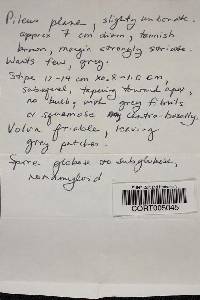 Pileus plane, slightly umbonate,
approx 7 cm diam, brownish
brown, margin strongly striate.
Warts few, grey.
Stipe 12-14 cm x 0.8-1.5 cm,
subequal, tapering toward apex,
no bulb, with grey fibrils
or squamose centro-basally.
Volva friable, leaving
grey patches.
Spores globose to subglobose,
nonamyloid
CORT005045